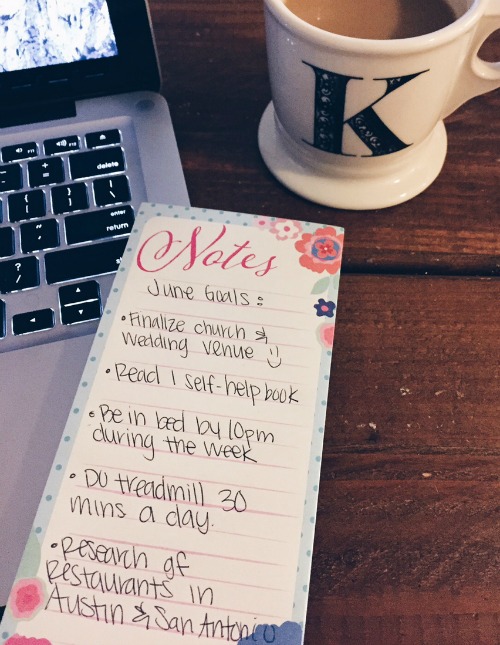 K
delete
enter
return
Notes
June Goals :
• Finalize church &
wedding venue :)
• Read 1 self-help book
• Be in bed by 10pm
during the week
• Do treadmill 30
mins a day.
• Research gf
restaurants in
Austin & San Antonio